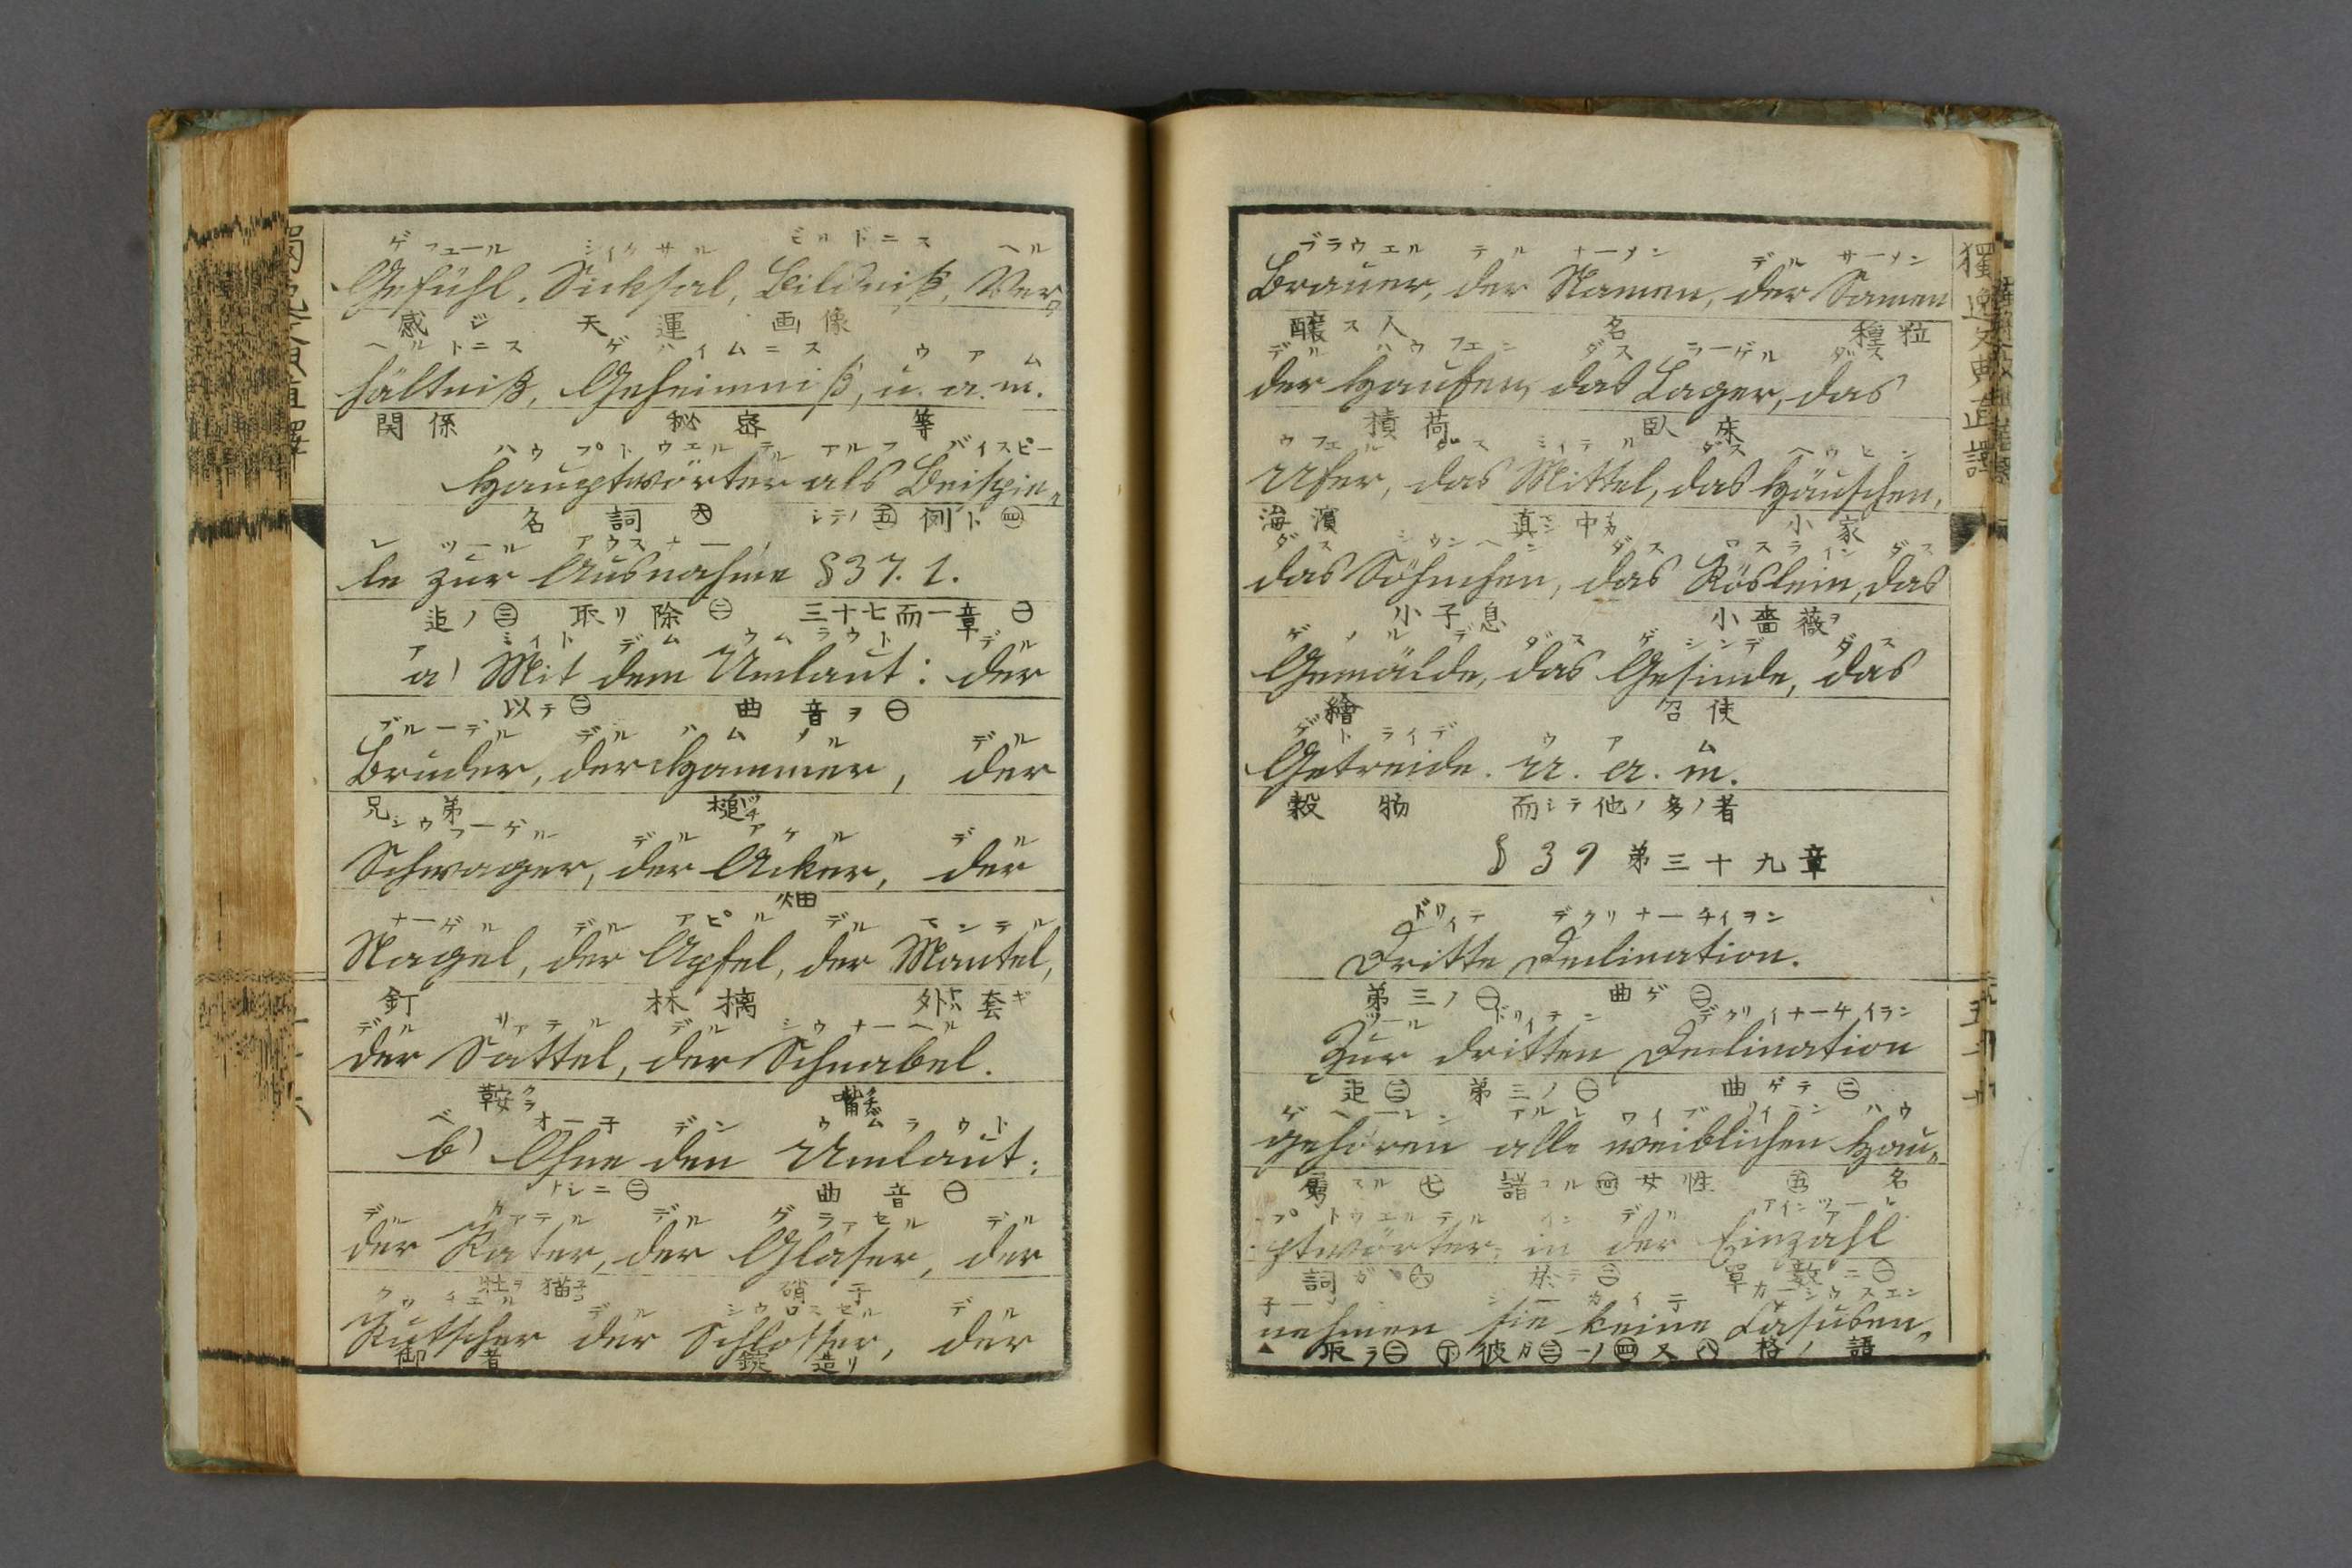 ゲフュール シイクサル ビルドニス ヘル
Gefühl, Sicksal, Bildniß, Ver=
感ジ 天運 画像
ヘルトニス ゲハイムニス ウ ア ム
hältniß, Geheimniß, u. a. m.
関係 秘密 等
ハウプトウエルテル アルス バイスピー
Hauptwörter als Beispie=
名詞㊅ シテノ㊄ 例ト㊃
レ ツール アウスナーメ
le zur Ausnahme §37. 1.
迠ノ㊂ 取リ除㊁ 三十七而一章㊀
ア ミイト デム ウムラウト デル
a) Mit dem Umlaut: der
以テ㊁ 曲音ヲ㊀
ブルーデル デル ハムメル デル
Bruder, der Hammer, der
兄弟 槌ツチ
シウワーゲル デル アケル デル
Schwager, der Acker, der
畑
ナーゲル デル アピル デル マンテル
Nagel, der Apfel, der Mantel,
釘 林擒 外套
デル サァテル デル シウナーベル
der Sattel, der Schnabel.
鞍クラ 嘴
ベ オーネ デン ウムラウト
b) Ohne den Umlaut:
ナシニ㊁ 曲音㊀
デル カァテル デル グラァセル デル
der Kater, der Glaser, der
牡ヲ猫子コ 硝子
クウチエル デル シウロスセル デル
Kutscher der Schlosser, der
御者 錠造リ
獨逸文典直譯
ブラウエル テル ナーメン デル サーメン
Brauer, der Namen, der Samen
醸ス人 名 種粒
デル ハウフエン ダス ラーゲル ダス
der Haufen, das Lager, das
積荷 臥床
ウフエル ダス ミイテル ダス ヘウヒン
Ufer, das Mittel, das Häuschen,
海濱 真中 小家
ダス シウンヘン ダス ロスライン ダス
das Söhnchen, das Röslein, das
小子息 小薔薇ヲ
ゲメルデ ダス ゲシンデ ダス
Gemälde, das Gesinde, das
繪 召使
ゲトライデ ウ ア ム
Getreide. u. a. m.
穀物 而シテ他ノ多ノ者
§ 39 第三十九章
ドリイテ デクリナーチイヲン
Dritte Declination.
第三ノ㊀ 曲ゲ㊁
ツール ドリイテン デクリイナーチイヲン
Zur dritten Declination
迠㊂ 第三ノ㊀ 曲ゲテ㊁
ゲヘーレン アルレ ワイブリイヘン ハウ
gehören alle weiblichen Hau=
属スル㊆ 諸ノ㊃ 女性㊄ 名
プトウエルテル イン デル アインツアール
ptwörter; in der Einzahl
詞ガ㊅ 於テ㊁ 單数ニ㊀
子ーメン シー カイ子 カーシウスエン
nehmen sie keine Casusen,
取ラ㊁ 彼ガ㊂ ㊃ 又ハ 格ノ語